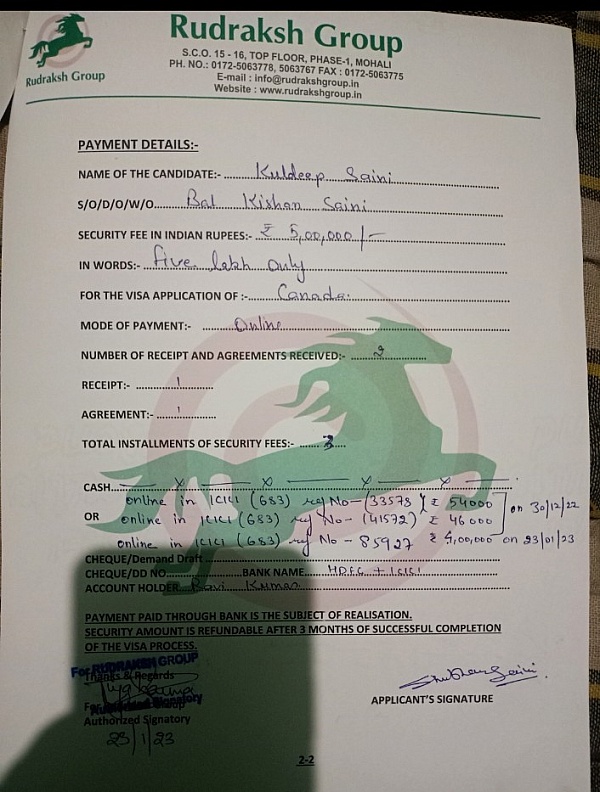 Rudraksh Group
Rudraksh Group
S.C.O. 15 - 16, TOP FLOOR, PHASE-1, MOHALI
PH. NO.: 0172-5063778, 5063767 FAX : 0172-5063775
E-mail : info@rudrakshgroup.in
Website : www.rudrakshgroup.in
PAYMENT DETAILS:-
NAME OF THE CANDIDATE:- Kuldeep Saini
S/O/D/O/W/O Bal Kishan Saini
SECURITY FEE IN INDIAN RUPEES:- ₹ 5,00,000/-
IN WORDS:- five lakh only
FOR THE VISA APPLICATION OF :- Canada.
MODE OF PAYMENT:- Online
NUMBER OF RECEIPT AND AGREEMENTS RECEIVED:- 2
RECEIPT:- 1
AGREEMENT:- 1
TOTAL INSTALLMENTS OF SECURITY FEES:- 3
CASH — x — x — x — x — x —
online in ICICI (683) ref No - (33578) ₹ 54000
OR online in ICICI (683) ref No - (41572) ₹ 46000 on 30/12/22
online in ICICI (683) ref No - 85927 ₹ 4,00,000 on 23/01/23
CHEQUE/Demand Draft
CHEQUE/DD NO. BANK NAME HDFC + ICICI
ACCOUNT HOLDER Ravi Kumar
PAYMENT PAID THROUGH BANK IS THE SUBJECT OF REALISATION.
SECURITY AMOUNT IS REFUNDABLE AFTER 3 MONTHS OF SUCCESSFUL COMPLETION
OF THE VISA PROCESS.
For RUDRAKSH GROUP
Thanks & Regards
Authorized Signatory
Authorized Signatory
23/1/23
APPLICANT'S SIGNATURE
2-2